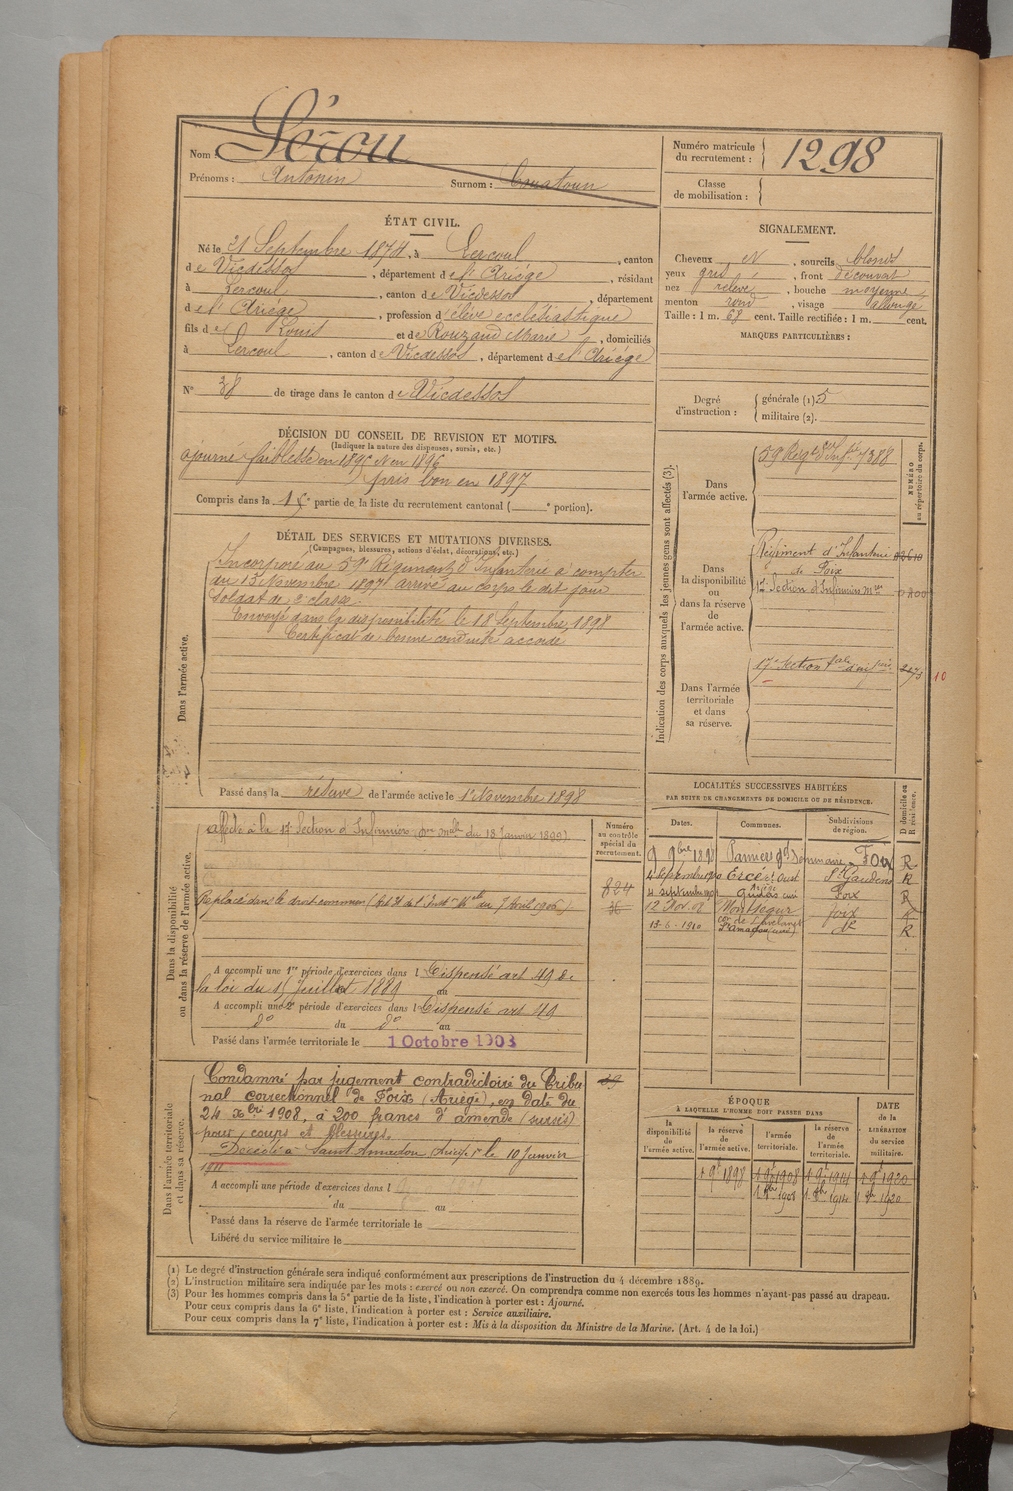 Nom : Sérou
Prénoms : Antonin Surnom :
Numéro matricule du recrutement : 1298
Classe de mobilisation :
ÉTAT CIVIL.
Né le 21 Septembre 1874, à Lercoul, canton
de Vicdessos, département de l'Ariège, résidant
à Lercoul, canton de Vicdessos, département
de l'Ariège, profession d'élève ecclésiastique
fils de Louis et de Rouzaud Marie, domiciliés
à Lercoul, canton de Vicdessos, département de l'Ariège
N° 38 de tirage dans le canton de Vicdessos
SIGNALEMENT.
Cheveux N, sourcils blonds
yeux gris, front découvert
nez relevé, bouche moyenne
menton rond, visage allongé
Taille : 1 m. 68 cent. Taille rectifiée : 1 m. cent.
MARQUES PARTICULIÈRES :
Degré d'instruction : générale (1) 5
militaire (2).
DÉCISION DU CONSEIL DE REVISION ET MOTIFS.
(Indiquer la nature des dispenses, sursis, etc.)
ajourné faiblesse en 1895 et en 1896
pris bon en 1897
Compris dans la 1e partie de la liste du recrutement cantonal ( e portion).
DÉTAIL DES SERVICES ET MUTATIONS DIVERSES.
(Campagnes, blessures, actions d'éclat, décorations, etc.)
Dans l'armée active.
Incorporé au 59e Régiment d'Infanterie à compter
du 15 Novembre 1897 arrivé au corps le dit jour
Soldat de 2e classe.
Envoyé dans la disponibilité le 18 Septembre 1898
Certificat de bonne conduite accordé
Passé dans la réserve de l'armée active le 1er Novembre 1898
Indication des corps auxquels les jeunes gens sont affectés (3).
NUMÉRO au répertoire du corps.
Dans l'armée active.
59 Régt d'Infie 7388
Dans la disponibilité ou dans la réserve de l'armée active.
Régiment d'Infanterie
de Foix
Section d'Infirmiers
Dans l'armée territoriale et dans sa réserve.
17e Section
10
LOCALITÉS SUCCESSIVES HABITÉES
PAR SUITE DE CHANGEMENTS DE DOMICILE OU DE RÉSIDENCE.
Dates. Communes. Subdivisions de région. D domicile ou R résidence.
9 9bre 1898 Pamiers gd Séminaire Foix R
Ercé et Oust St Gaudens R
4 septembre Foix R
12 Nov. Montségur Foix R
13-6-1910 St Amadou do R
Dans la disponibilité ou dans la réserve de l'armée active.
affecté à la 17e Section d'Infirmiers du 18 Janvier 1899).
Replacé dans le droit commun
Numéro au contrôle spécial du recrutement.
824
A accompli une 1re période d'exercices dans l Dispensé art 49 de
la loi du 15 Juillet 1889 au
A accompli une 2e période d'exercices dans l Dispensé art 49
do du do au
Passé dans l'armée territoriale le 1 Octobre 1908
Dans l'armée territoriale et dans sa réserve.
Condamné par jugement contradictoire du Tribu
nal correctionnel de Foix (Ariège), en date du
24 Xbre 1908, à 200 francs d'amende (sursis)
pour coups et blessures.
Décédé à Saint Amadou Ariège le 10 janvier
1911
A accompli une période d'exercices dans l
du au
Passé dans la réserve de l'armée territoriale le
Libéré du service militaire le
ÉPOQUE
À LAQUELLE L'HOMME DOIT PASSER DANS
la disponibilité de l'armée active. la réserve de l'armée active. l'armée territoriale. la réserve de l'armée territoriale.
DATE de la LIBÉRATION du service militaire.
1 9e 1898 1 9e 1908 1 9e 1914 1 9e 1920
1 8bre 1908 1 8bre 1914 1 8bre 1920
(1) Le degré d'instruction générale sera indiqué conformément aux prescriptions de l'instruction du 4 décembre 1889.
(2) L'instruction militaire sera indiquée par les mots : exercé ou non exercé. On comprendra comme non exercés tous les hommes n'ayant pas passé au drapeau.
(3) Pour les hommes compris dans la 5e partie de la liste, l'indication à porter est : Ajourné.
Pour ceux compris dans la 6e liste, l'indication à porter est : Service auxiliaire.
Pour ceux compris dans la 7e liste, l'indication à porter est : Mis à la disposition du Ministre de la Marine. (Art. 4 de la loi.)